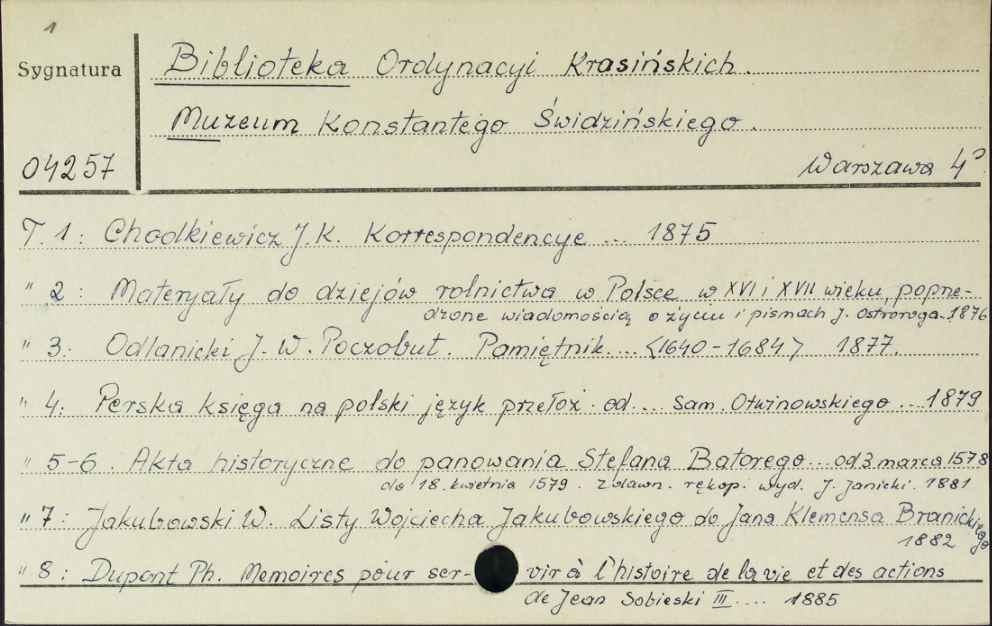 1
Sygnatura
Biblioteka Ordynacyi Krasińskich.
Muzeum Konstantego Świdzińskiego.
04257
Warszawa 4°
T. 1 : Chodkiewicz J.K. Korrespondencye ... 1875
" 2 : Materyały do dziejów rolnictwa w Polsce w XVI i XVII wieku, poprze-
dzone wiadomością o życiu i pismach J. Ostroroga. 1876
" 3. Odlanicki J. W. Poczobut. Pamiętnik... <1640-1684> 1877.
" 4: Perska księga na polski język przełoż. od... Sam. Otwinowskiego ... 1879
" 5-6. Akta historyczne do panowania Stefana Batorego ... od 3 marca 1578
do 18. kwietnia 1579. z dawn. rękop. wyd. J. Janicki. 1881
" 7 : Jakubowski W. Listy Wojciecha Jakubowskiego do Jana Klemensa Branickiego
1882
" 8 : Dupont Ph. Memoires pour ser- vir à l'histoire de la vie et des actions
de Jean Sobieski III .... 1885